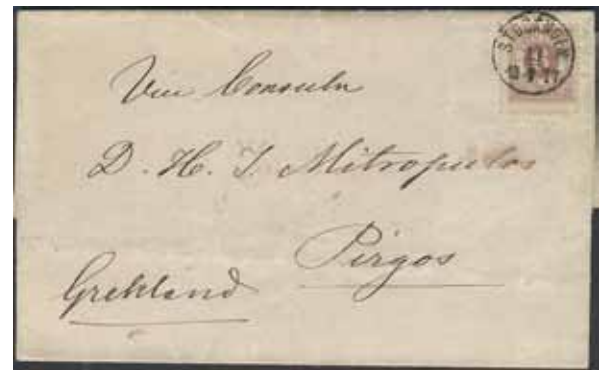 STOCKHOLM
Vice Consuln
D. H. J. Mitropulos
Pirgos
Grekland